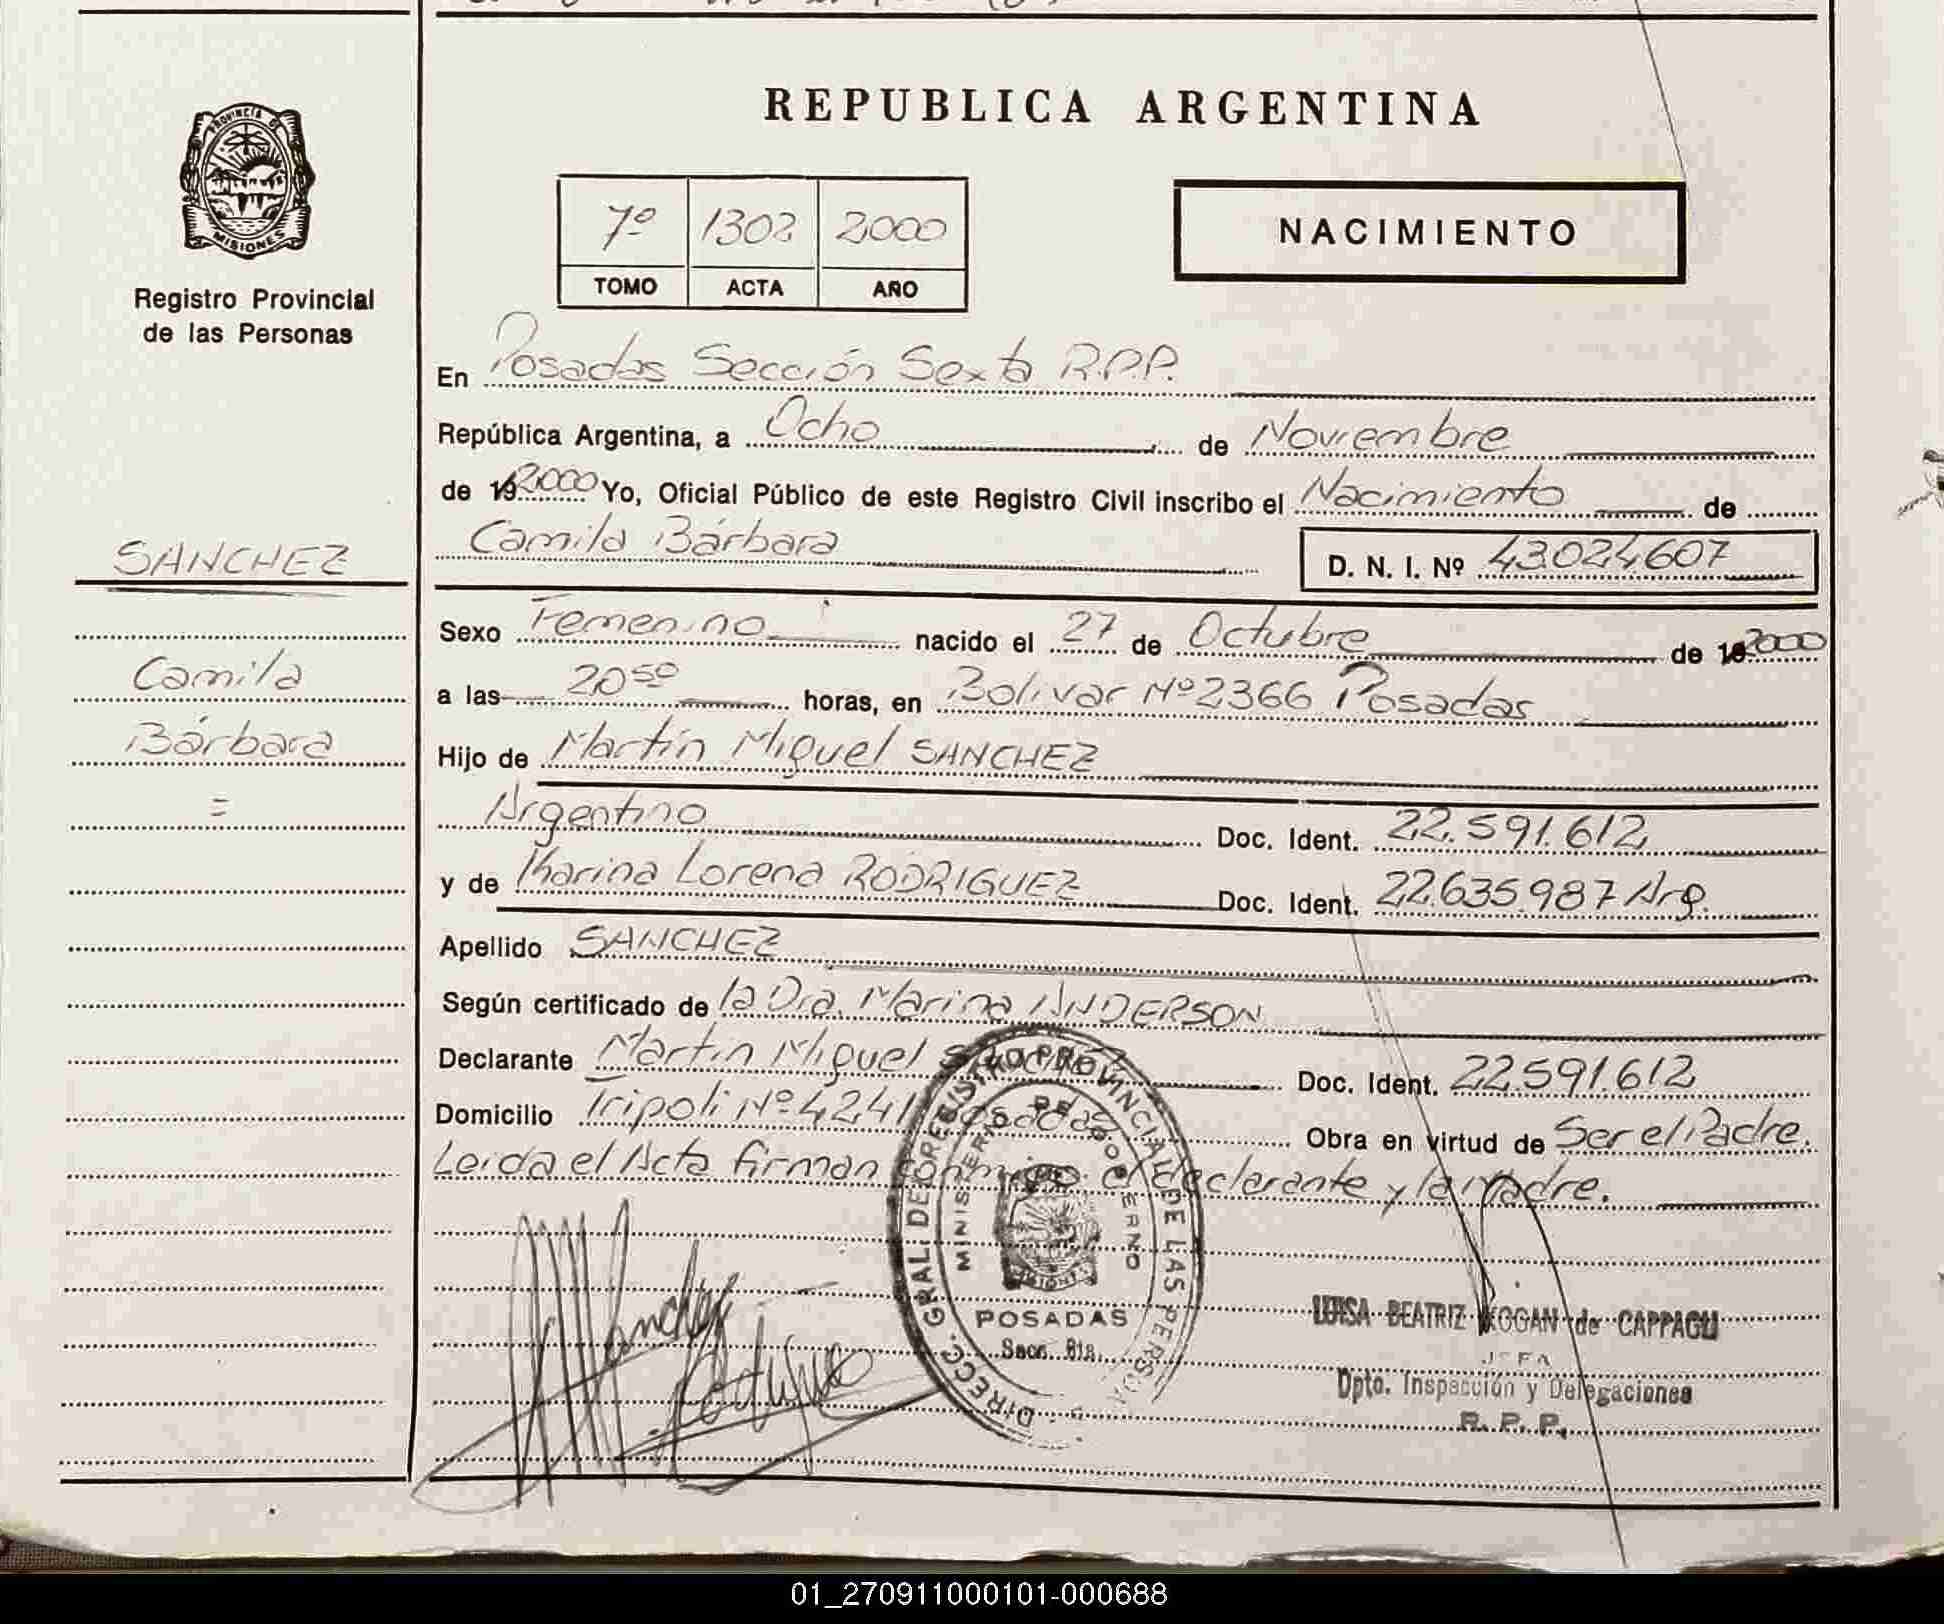 REPUBLICA ARGENTINA
PROVINCIA DE
MISIONES
Registro Provincial
de las Personas
7º 1302 2000
TOMO ACTA AÑO
NACIMIENTO
En Posadas Sección Sexta R.P.P.
República Argentina, a Ocho de Noviembre
de 19 2000 Yo, Oficial Público de este Registro Civil inscribo el Nacimiento de
Camila Bárbara D. N. I. Nº 43.024.607
SANCHEZ
Camila
Bárbara
=
Sexo Femenino nacido el 27 de Octubre de 19 2000
a las 20 50 horas, en Bolivar Nº 2366 Posadas
Hijo de Martín Miguel SANCHEZ
Argentino Doc. Ident. 22.591.612
y de Karina Lorena RODRIGUEZ Doc. Ident. 22.635.987 Arg.
Apellido SANCHEZ
Según certificado de la Dra. Marina ANDERSON
Declarante Martín Miguel SANCHEZ Doc. Ident. 22.591.612
Domicilio Tripoli Nº 4241 Posadas Obra en virtud de Ser el Padre.
Leida el Acta firman conmigo el declarante y la Madre.
DIRECC. GRAL. DE REGISTRO PROVINCIAL DE LAS PERSONAS
MINISTERIO DE GOBIERNO
MISIONES
POSADAS
Secc. 6ta.
Sanchez
Rodriguez
LUISA BEATRIZ KOGAN de CAPPAGLI
JEFA
Dpto. Inspección y Delegaciones
R. P. P.
01_270911000101-000688